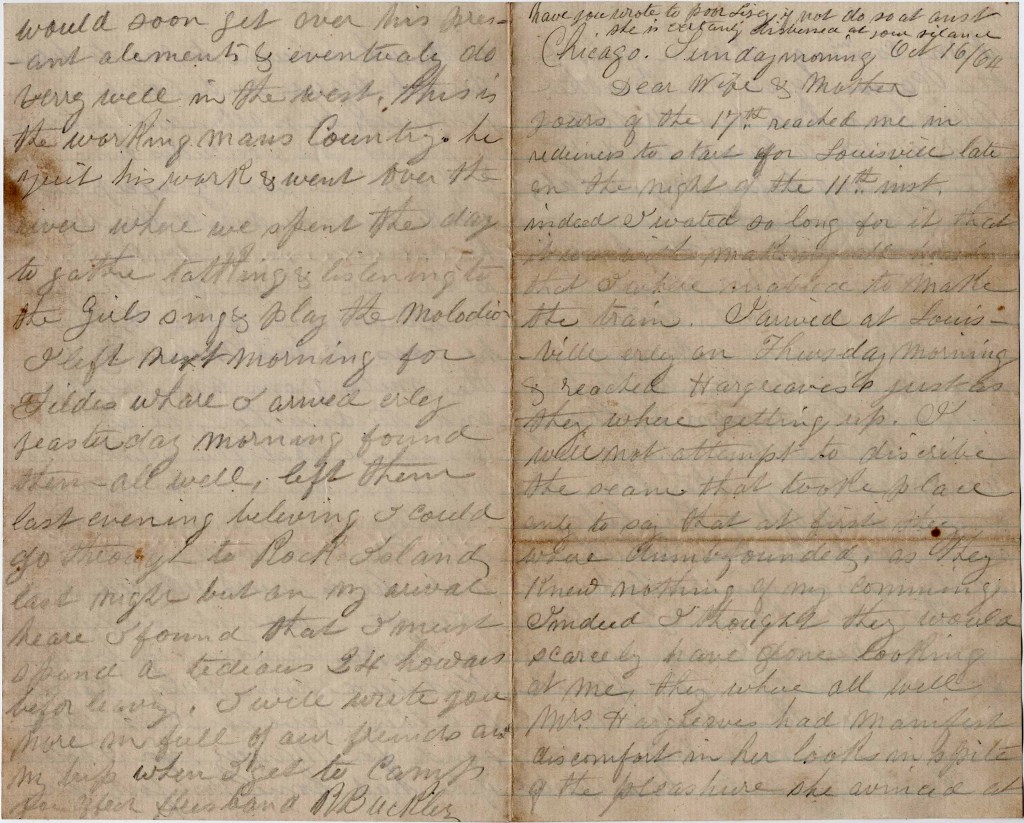 have you wrote to poor Lisey if not do so at onst
she is certainly distressed at your silance
Chicago. Sunday morning Oct 16/64
Dear Wife & Mother
yours of the 17th reached me in
rediness to start for Louisvill late
on the night of the 11th inst.
indeed I wated so long for it that
it was with
that I where enabled to make
the train. I arived at Louis-
-ville erly on Thursday morning
& reached Hargreaves's just as
they where getting up. I
will not attempt to discribe
the seane that tooke place
only to say that at first they
where dumbfounded, as they
knew nothing of my comming,
Indeed I thought they would
scarcely have done looking
at me, they where all well
Mrs Hargreaves had manifest
discomfort in her looks in spite
of the pleashure she evinced at
would soon get over his pres-
-ant alements & eventualy do
verry well in the west. this is
the working mans Country. he
quit his work & went over the
river where we spent the day
to gathe talking & listening to
the Girls sing & play the Molodion
I left next morning for
Tildes whare I arived erley
yeasterday morning found
them all well, left them
last evening beliving I could
go through to Rock Island
last night but on my arival
heare I found that I must
spend a tedious 24 howars
befor leaving. I will write you
more in full of our freinds and
my trip when I get to Camp
your affect Husband R Buckley